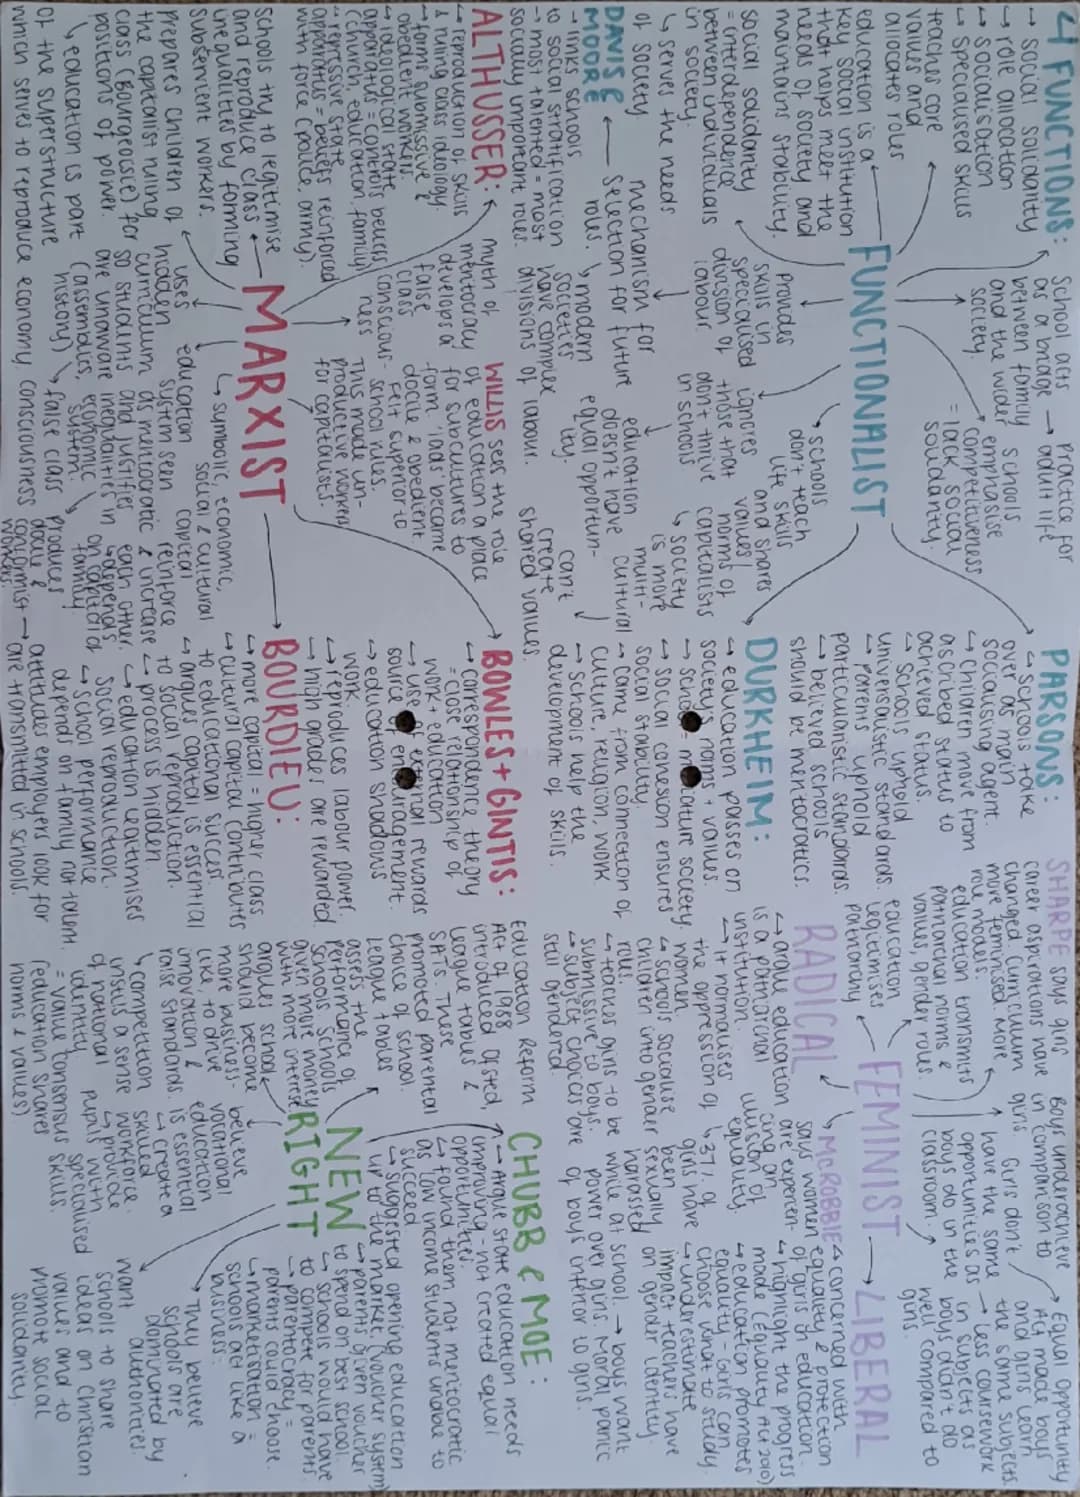 4 FUNCTIONS:
→ social solidarity
→ role allocation
→ socialisation
→ specialised skills
teaches core
values and
allocates roles
education is a
key social institution
that helps meet the
needs of society and
maintains stability.
social solidarity
= interdependence
between individuals
in society.
↳ serves the needs
of society
School acts → practice for
as a bridge adult life
between family
and the wider
society.
schools
emphasise
competitiveness
= lack social
solidarity.
FUNCTIONALIST
provides
skills in
specialised
division of
labour.
mechanism for
selection for future
roles.
↳ modern
societies
have complex
divisions of labour.
↳ schools
don't teach
life skills
ignores
those that
don't thrive
in schools
education
doesn't have
equal opportun-
ity.
and shares
values/
norms of
capitalists
↳ society
is more
multi-
cultural
can't
create
shared values.
DAVIS &
MOORE
→ links schools
to social stratification
→ most talented = most
socially important roles.
PARSONS:
↳ schools take
over as main
socialising agent.
↳ children move from
ascribed status to
achieved status.
↳ schools uphold
universalistic standards.
↳ parents uphold
particularistic standards.
↳ believed schools
should be meritocratics.
DURKHEIM:
↳ education passes on
society's norms + values.
→ social cohesion ensures
social stability.
↳ came from connection of
culture, religion, work
→ schools help the
development of skills.
ALTHUSSER:
↳ reproduction of skills
& ruling class ideology.
→ forms submissive &
obedient workers.
↳ ideological state
apparatus = controls beliefs
(church, education, family)
→ repressive state
apparatus = beliefs reinforced
with force (police, army).
myth of
meritocracy
develops a
false
class
conscious-
ness
WILLIS sees the role
of education a place
for subcultures to
form. 'lads' become
docile & obedient
felt superior to
school rules.
This made un-
productive workers
for capitalists.
MARXIST
schools try to legitimise
and reproduce class
inequalities by forming
subservient workers.
prepares children of
the capitalist ruling
class (Bourgeoisie) for
positions of power.
↳ education is part
of the superstructure
which serves to reproduce economy.
uses
hidden
curriculum
so students
are unaware
(assemblies,
history)
↳ false class
consciousness
education
system seen
as meritocratic
and justifies
inequalities in
economic
system.
produces
docile &
conformist
workers.
↳ symbolic, economic,
social & cultural
capital
reinforce
& increase
each other.
↳ depends
on capital of
family.
BOWLES + GINTIS:
↳ correspondence theory
= close relationship of
work + education
↳ use of external rewards
source of encouragement.
↳ education shadows
work.
↳ reproduces labour power.
↳ high grades are rewarded.
BOURDIEU:
↳ more capital = higher class
↳ cultural capital contributes
to educational success.
↳ argues capital is essential
to social reproduction.
↳ process is hidden.
↳ education legitimises
social reproduction.
↳ school performance
depends on family not talent.
→ attitudes employers look for
are transmitted in schools.
SHARPE says girls
career aspirations have
changed. Curriculum
more feminised. More
role models.
Boys underachieve
in comparison to
girls.
education transmits
patriarchal norms &
values, gender roles.
education
legitimises
patriarchy
Girls don't
have the same
opportunities as
boys do in the
classroom.
→ Equal opportunity
Act made boys
and girls learn
the same subjects.
→ less coursework
in subjects as
boys didn't do
well compared to
girls.
FEMINIST → LIBERAL
RADICAL
↳ argue education
is a patriarcal
institution.
↳ it normalises
the oppression of
women.
↳ schools socialise
children into gender
role.
↳ teaches girls to be
submissive to boys.
↳ subject choices are
still gendered.
↳ McROBBIE
says women
are experien-
cing an
illusion of
equality.
↳ 37% of
girls have
been
sexually
harassed
while at school. → boys want
power over girls. Moral panic
of boys inferior to girls.
↳ concerned with
equality & protection
of girls in education.
↳ highlight the progress
made (Equality Act 2010)
↳ education promotes
equality - girls can
choose what to study.
↳ underestimate
impact teachers have
on gender identity.
CHUBB & MOE:
→ Argue state education needs
improving - not created equal
opportunities.
↳ found them not meritocratic
as low income students unable to
succeed
↳ suggested opening education
up to the market, (voucher system)
↳ parents given voucher
to spend on best school.
↳ schools would have
to compete for parents
→ parentocracy =
parents could choose.
↳ marketisation =
schools act like a
business.
NEW
RIGHT
Education Reform
Act of 1988
introduced ofsted,
league tables &
SATs. These
promoted parental
choice of school.
league tables
asses the
performance of
schools. Schools
given more money
with more interest
argues school
should become
more business-
like to drive
innovation &
raise standards.
↳ competition
instils a sense
of national
= value consensus
(education shares
norms & values)
believe
vocational
education
is essential
↳ create a
skilled
workforce.
↳ provide
pupils with
specialised
skills.
→ They believe
schools are
dominated by
authorities.
want
schools to share
ideas on Christian
values and to
promote social
solidarity.